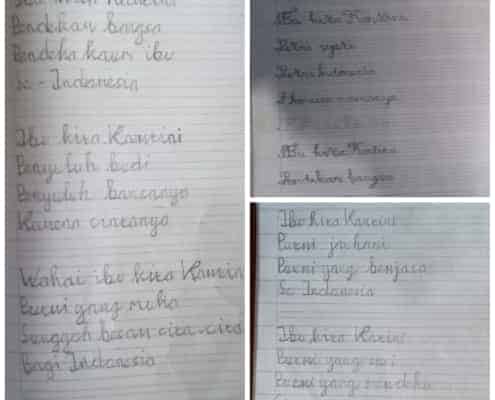 Ibu kita Kartini
Pendekar bangsa
Pendeka kaum ibu
se - Indonesia
Ibu kita Kartini
Penyuluh budi
Penyuluh bangsanya
Karena cintanya
Wahai ibu kita Kartini
Putri yang mulia
Sunggoh besar cita-cita
Bagi Indonesia
Ibu kita Kartini
Putri sejati
Putri Indonesia
Harum namanya
Ibu kita Kartini
Pendekar bangsa
Ibu kita Kartini
Putri jauhari
Putri yang berjasa
Se Indonesia
Ibu kita Kartini
Putri yang suci
Putri yang merdeka